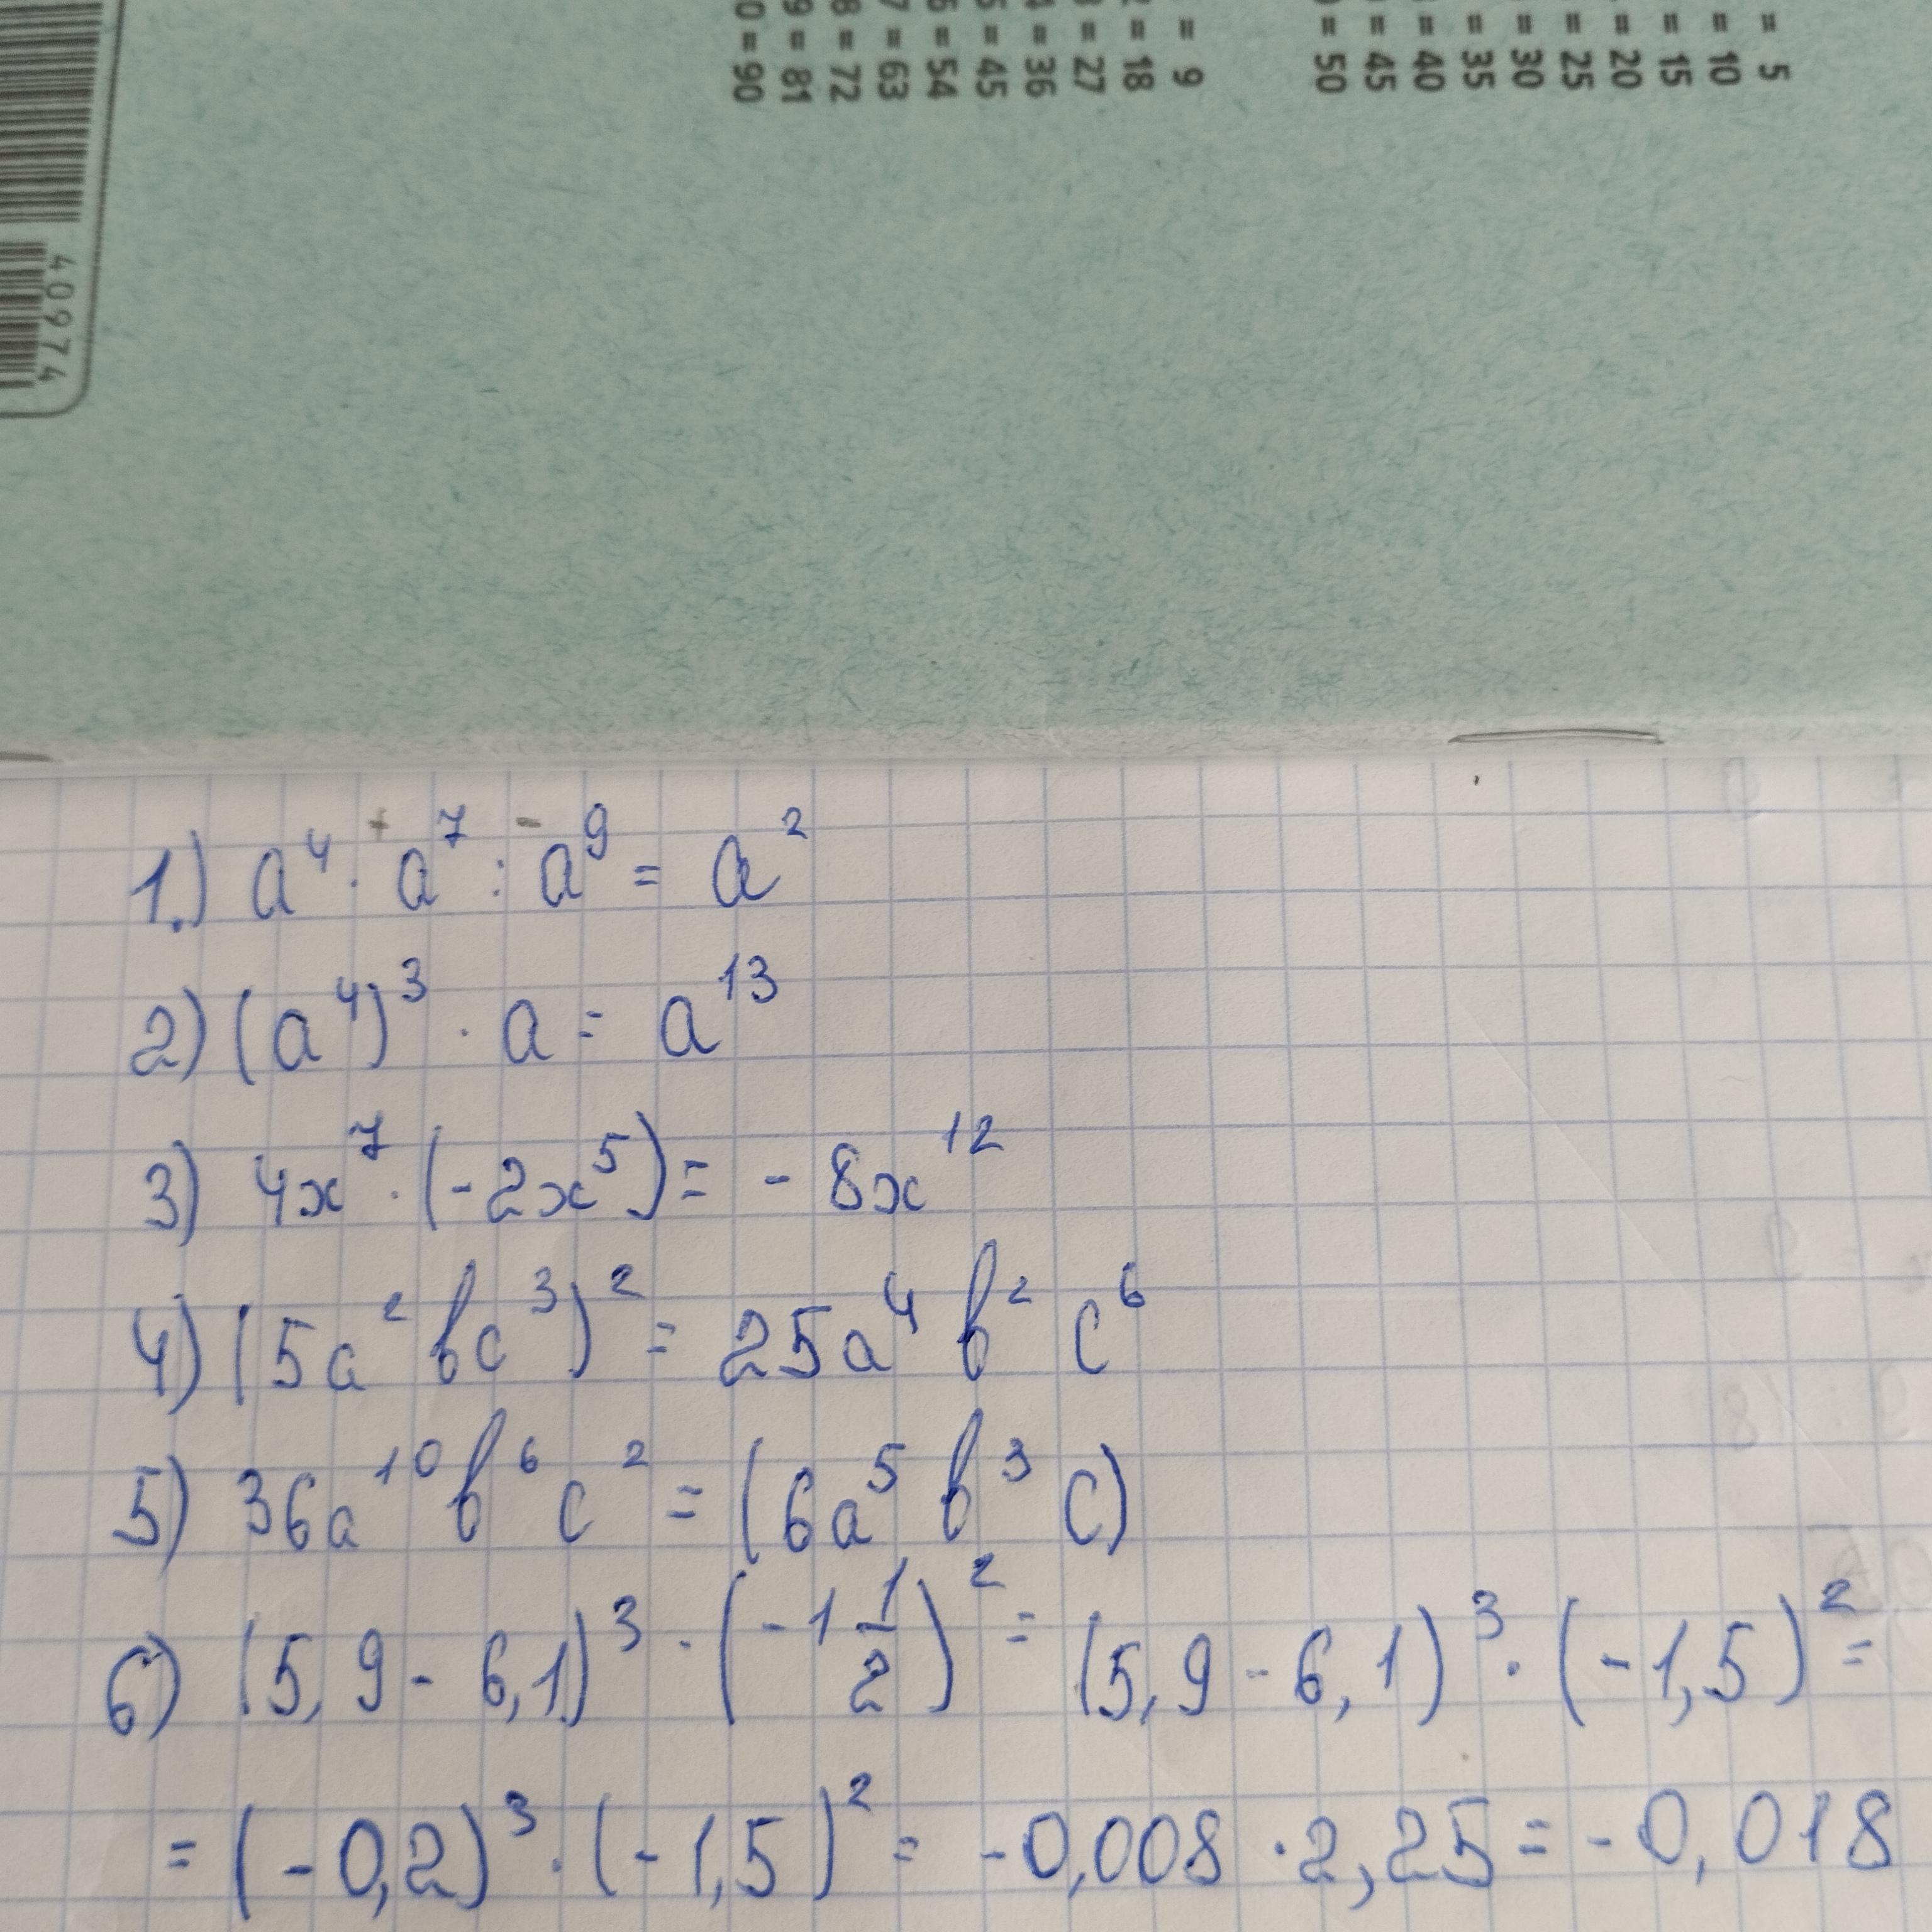 40974
0 = 90
9 = 81
8 = 72
7 = 63
6 = 54
5 = 45
4 = 36
3 = 27
2 = 18
= 9
= 50
= 45
= 40
= 35
= 30
= 25
= 20
= 15
= 10
= 5
1.) a⁴ · a⁷ : a⁹ = a²
+ -
2) (a⁴)³ · a = a¹³
3) 4x⁷ · (-2x⁵) = - 8x¹²
4) (5a²bc³)² = 25a⁴ b² c⁶
5) 36a¹⁰b⁶c² = (6a⁵ b³ c)
6) (5,9 - 6,1)³ · (-1 1/2)² = (5,9 - 6,1)³ · (-1,5)² =
= (-0,2)³ · (-1,5)² = -0,008 · 2,25 = -0,018